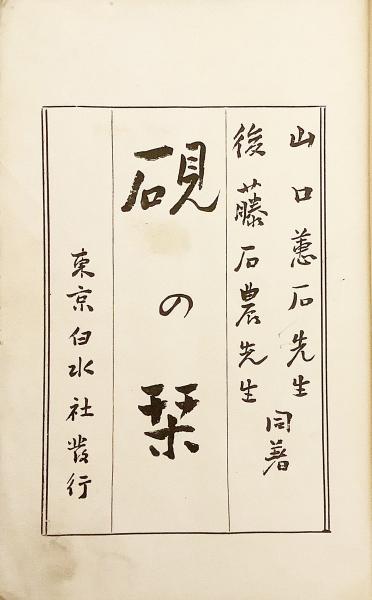 山口蕙石先生
後藤石農先生
同著
硯の栞
東京白水社發行